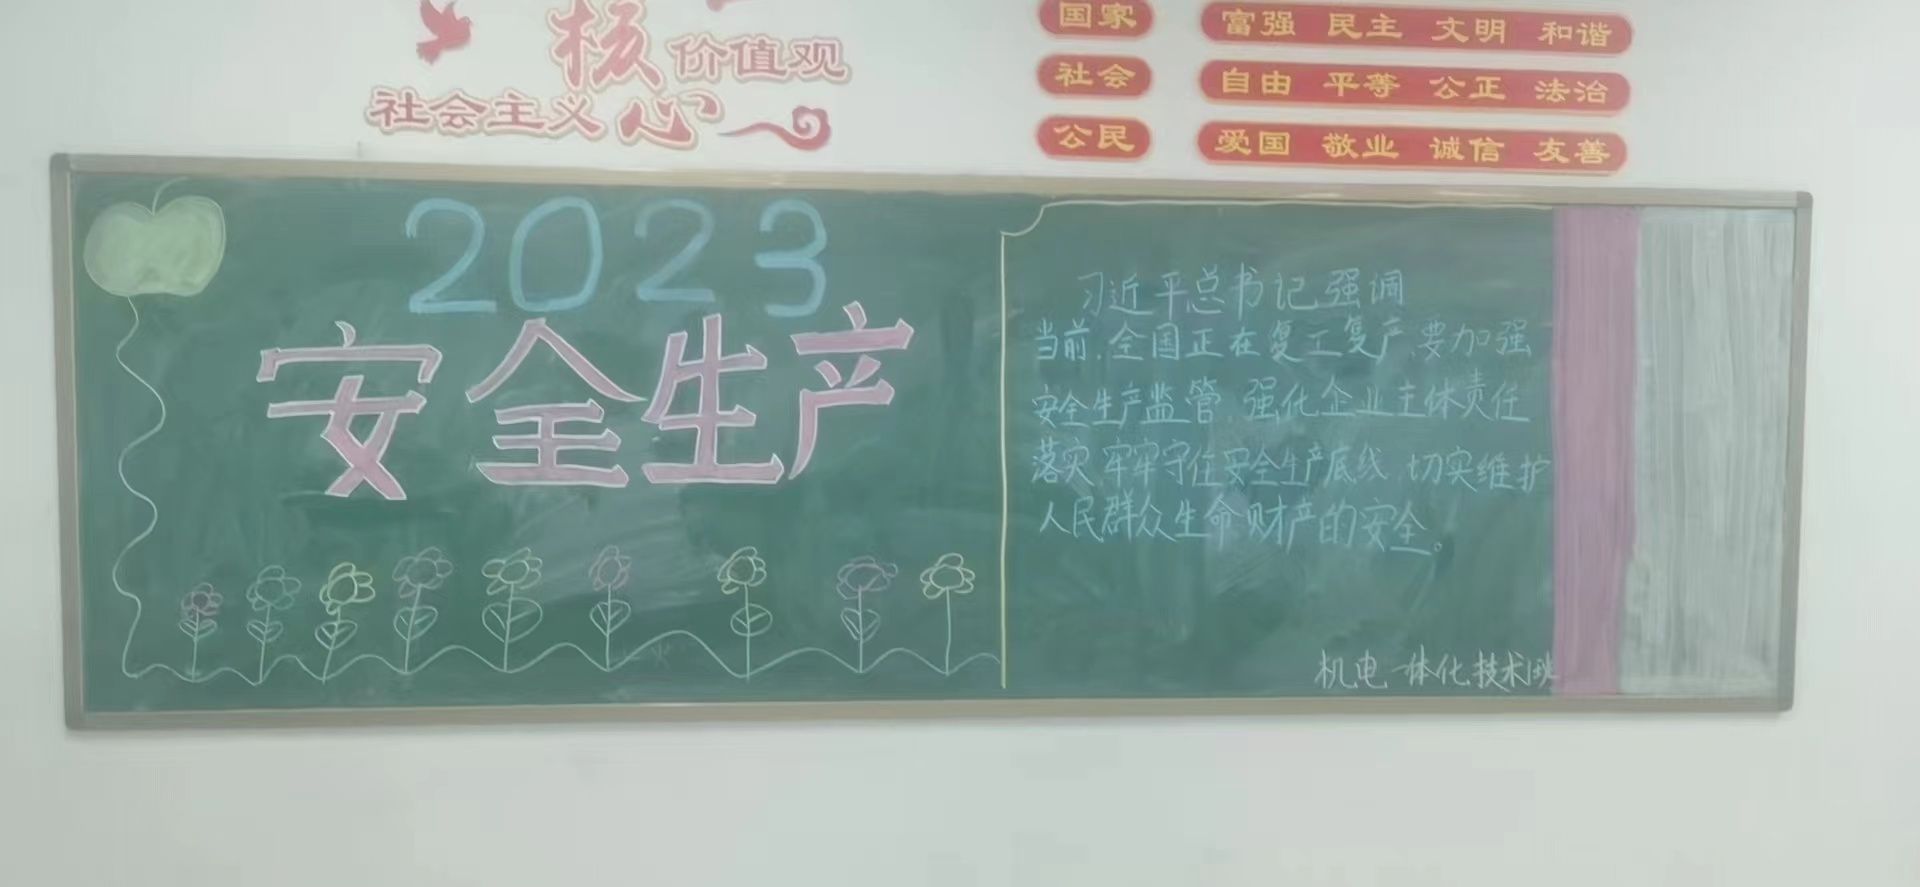 社会主义核心价值观
国家 富强 民主 文明 和谐
社会 自由 平等 公正 法治
公民 爱国 敬业 诚信 友善
2023
安全生产
习近平总书记强调
当前,全国正在复工复产,要加强
安全生产监管,强化企业主体责任
落实,牢牢守住安全生产底线,切实维护
人民群众生命财产的安全。
机电一体化技术班